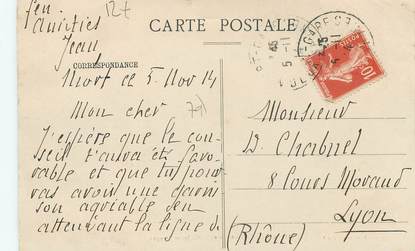 Amitiés
Jean
127
CARTE POSTALE
CORRESPONDANCE
Niort ce 5 Nov 14
Mon cher
J'espère que le con-
seil t'aura été favo-
rable et que tu pour
ras avoir une garni
son agréable en
attendant la ligne d
Monsieur
8 Cours Morand
Lyon
(Rhône)
10